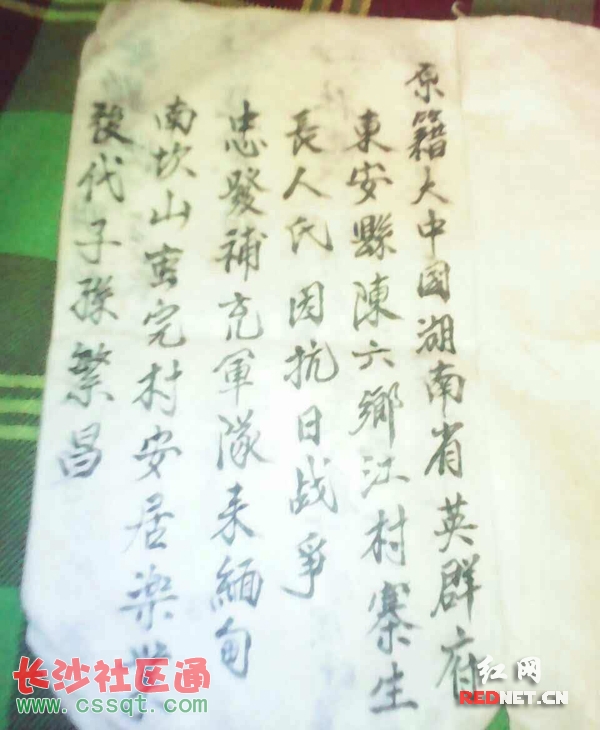 原籍大中國湖南省英群府
東安縣陳六鄉江村寨生
長人氏因抗日战爭
忠發補充軍隊来緬甸
南坎山蛮完村安居楽
後代子孫繁昌
长沙社区通
www.cssqt.com
红网
REDNET.CN